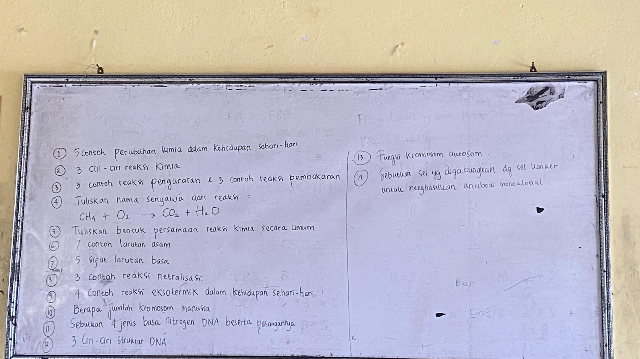 ① 5 contoh perubahan kimia dalam kehidupan sehari-hari
② 3 ciri-ciri reaksi kimia
③ 3 contoh reaksi penguraian & 3 contoh reaksi pembakaran
④ Tuliskan nama senyawa dari reaksi :
CH4 + O2 → CO2 + H2O
⑤ Tuliskan bentuk persamaan reaksi kimia secara umum
⑥ 7 contoh larutan asam
⑦ 5 sifat larutan basa
⑧ 3 contoh reaksi netralisasi
⑨ 4 contoh reaksi eksotermik dalam kehidupan sehari-hari
⑩ Berapa jumlah kromosom manusia
⑪ Sebutkan 4 jenis basa nitrogen DNA beserta pasangannya
⑫ 3 ciri-ciri struktur DNA
⑬ Fungsi kromosom autosom
⑭ Sebutkan sel yg digabungkan dg sel kanker
untuk menghasilkan antibodi monoklonal